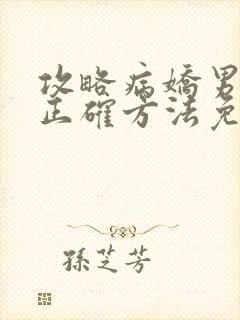 攻略病嬌男
正確方法免
孫芝芳